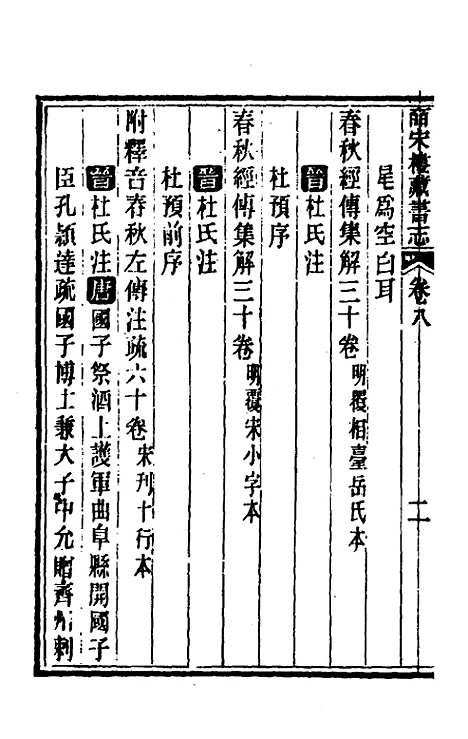 皕宋樓藏書志 卷八 二
是爲空白耳
春秋經傳集解三十卷 明覆相臺岳氏本
晉杜氏注
杜預序
春秋經傳集解三十卷 明覆宋小字本
晉杜氏注
杜預前序
附釋音春秋左傳注疏六十卷 宋刊十行本
晉杜氏注唐國子祭酒上護軍曲阜縣開國子
臣孔頴達疏國子博士兼太子中允贈齊州刺